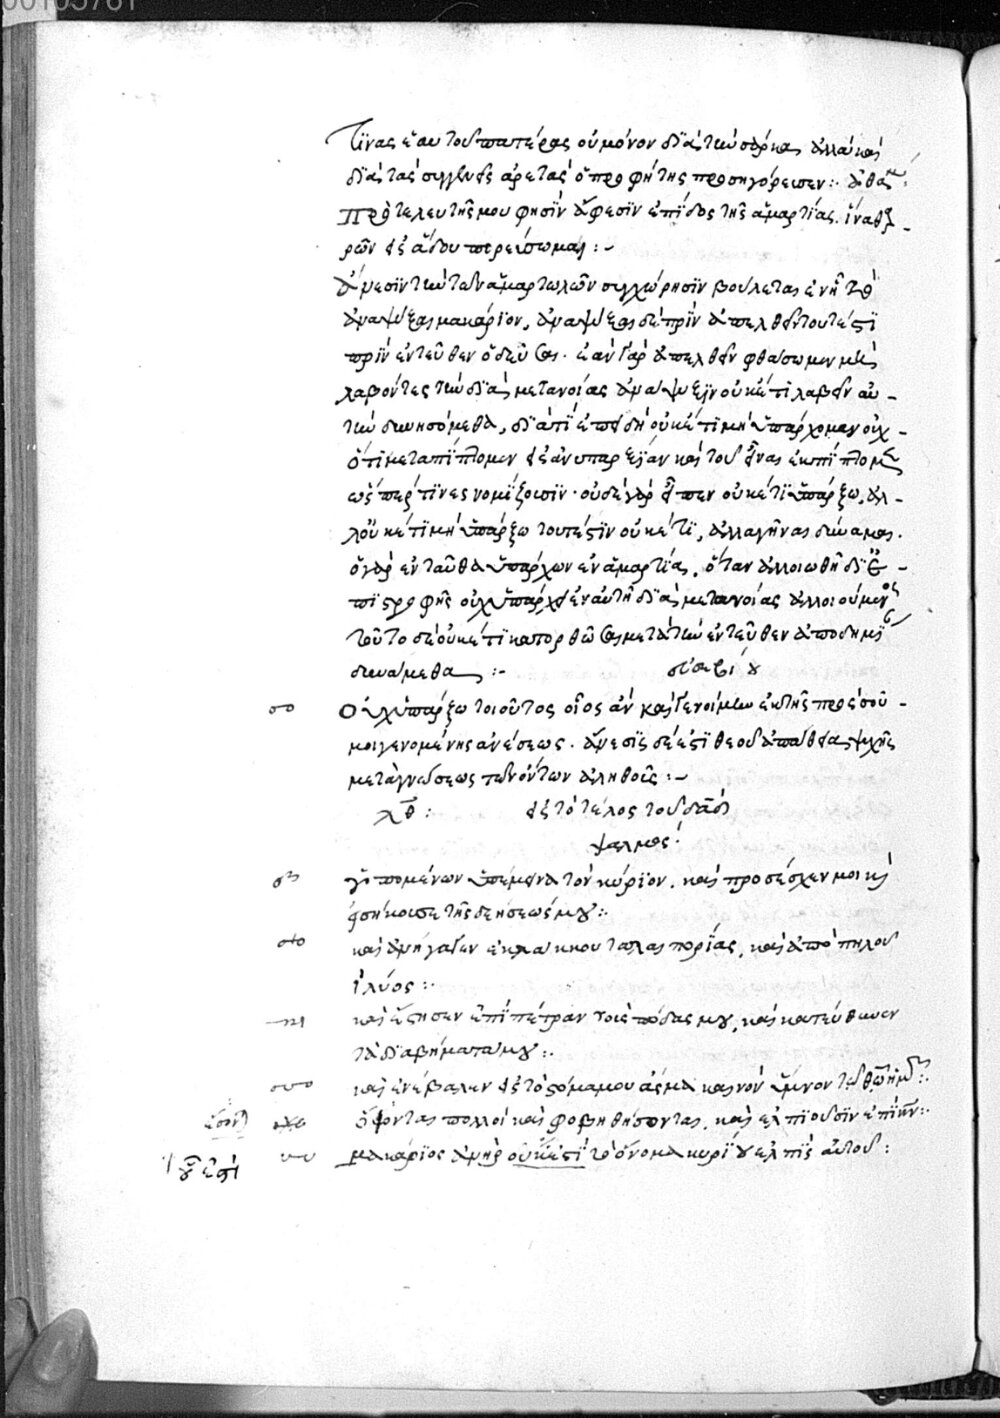 00105781
τίνας ἑαυτοῦ πατέρας οὐ μόνον διὰ τὴν σάρκα ἀλλὰ καὶ
διὰ τὰς συγγενεῖς ἀρετὰς ὁ προφήτης προσηγόρευσεν :
Πρὸ τελευτῆς μου φησὶν ἄφεσιν ἐπίδος τῆς ἁμαρτίας. ἵνα θ
ρῶν εἰς ἅδου πορεύσωμαι :~
ἄνεσιν τὴν τῶν ἁμαρτωλῶν συγχώρησιν βούλεται ἐν ᾗ τὸ
ἀναψύξαι μακάριον, ἀναψύξαι δὲ πρὶν ἀπελθεῖν τουτέστι
πρὶν ἐντεῦθεν ὁδεῦσαι. ἐὰν γὰρ ἀπελθεῖν φθάσωμεν μὴ
λαβόντες τὴν διὰ μετανοίας ἀνάψυξιν οὐκέτι λαβεῖν αὐ-
τὴν δυνησόμεθα, διατί ἐπειδὴ οὐκέτι μὴ ὑπάρχομεν οὐχ
ὅτι μεταπίπτομεν εἰς ἀνυπαρξίαν καὶ τοῦ εἶναι ἐκπίπτομεν
ὥσπερ τινὲς νομίζουσιν. οὐδὲ γὰρ εἶπεν οὐκέτι ὑπάρξω, ἀλ-
λ' οὐκέτι μὴ ὑπάρξω τουτέστιν οὐκέτι, ἀλλαγῆναι δύναμαι.
ὁ γὰρ ἐνταῦθα ὑπάρχων ἐν ἁμαρτίαι, ὅταν ἀλλοιωθῆ δι' ἐ-
πιστροφῆς οὐχ ὑπάρχει ἐν αὐτῆ διὰ μετανοίας ἀλλοιούμενος
τοῦτο δὲ οὐκέτι κατορθῶσαι μετὰ τὴν ἐντεῦθεν ἀποδημίαν
δυνάμεθα :~
Οὐχ ὑπάρξω τοιοῦτος οἷος ἂν καὶ γενοίμην ἐκ τῆς παρὰ σοῦ
μοι γενομένης ἀνέσεως. ἄνεσις δέ ἐστι θεοῦ ἀπάθεια ψυχῆς
μετὰ γνώσεως τῶν ὄντων ἀληθοῦς :~
λθ : εἰς τὸ τέλος τοῦ δαδ
ψαλμός :
Ὑπομένων ὑπέμεινα τὸν κύριον. καὶ προσέσχεν μοι καὶ
εἰσήκουσε τῆς δεήσεώς μου :
καὶ ἀνήγαγεν ἐκ λάκκου ταλαιπωρίας, καὶ ἀπὸ πηλοῦ
ἰλύος :
καὶ ἔστησεν ἐπὶ πέτραν τοὺς πόδας μου, καὶ κατεύθυνεν
τὰ διαβήματά μου :
καὶ ἐνέβαλεν εἰς τὸ στόμα μου ᾆσμα καινὸν ὕμνον τῶ θεῶ ἡμῶν :
ὄψονται πολλοὶ καὶ φοβηθήσονται, καὶ ἐλπιοῦσιν ἐπὶ κν :
μακάριος ἀνὴρ οὗ ἐστι τὸ ὄνομα κυρίου ἐλπὶς αὐτοῦ :
οὗ ἐστὶ